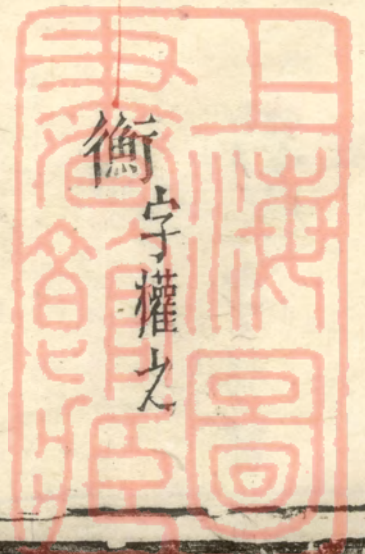 衡字權之
上海圖
書館藏